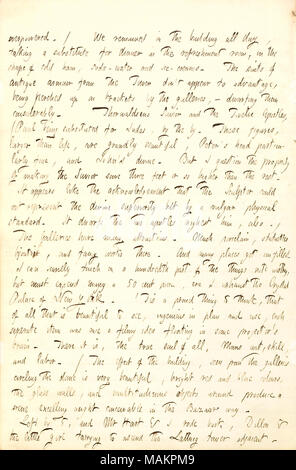 overpowered. / We remained in the building all day,
taking a substitute for dinner in the refreshment room, in the
shape of cold ham, soda-water and ice-creams. The suits of
antique armour from the Tower don't appear to advantage,
being perched up on brackets by the galleries, — dwarfing them
considerably. Thorwaldsens Savior and the Twelve Apostles,
(Paul being substituted for Judas, by the by. These figures,
larger than life, are grandly beautiful, Peter's head partic-
ularly fine, and John's divine. But I question the propriety
of making the Savior some three feet or so higher than the rest.
It appears like the acknowledgement that the Sculptor could
not represent the divine superiority but by a vulgar physical
standard. It dwarfs the two apostles nighest him, also.
The galleries have many attractions. Much porcelain, statuettes
and fancy works there. And many places yet unfilled.
I can scarcely touch on a hundredth part of the things
but must expend many a 50 cent
Palace of New York. 'Tis a proud thing to think, that
of all that is beautiful to see, ingenious in plan and use, each
separate item was once a filmy idea floating in some projector's
brain. There it is, the true soul of all, Mans wit, skill,
and labor. / The effect of the building, seen from the galleries
circling the dome is very beautiful, bright red and blue colors,
the glass walls, and multitudinous objects around produce a
scene excelling aught conceivable in the Bazaar way.
Left by 5, and Mr Hart & I rode back, Dillon &
the little girl tarrying to ascend the Latting tower adjacent.
alamy
Image ID: MAKPM9
www.alamy.com